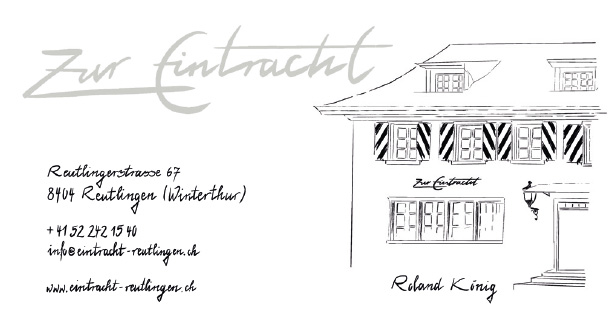 Zur Eintracht
Reutlingerstrasse 67
8404 Reutlingen (Winterthur)
+41 52 242 15 40
info@eintracht-reutlingen.ch
www.eintracht-reutlingen.ch
Zur Eintracht
Roland König